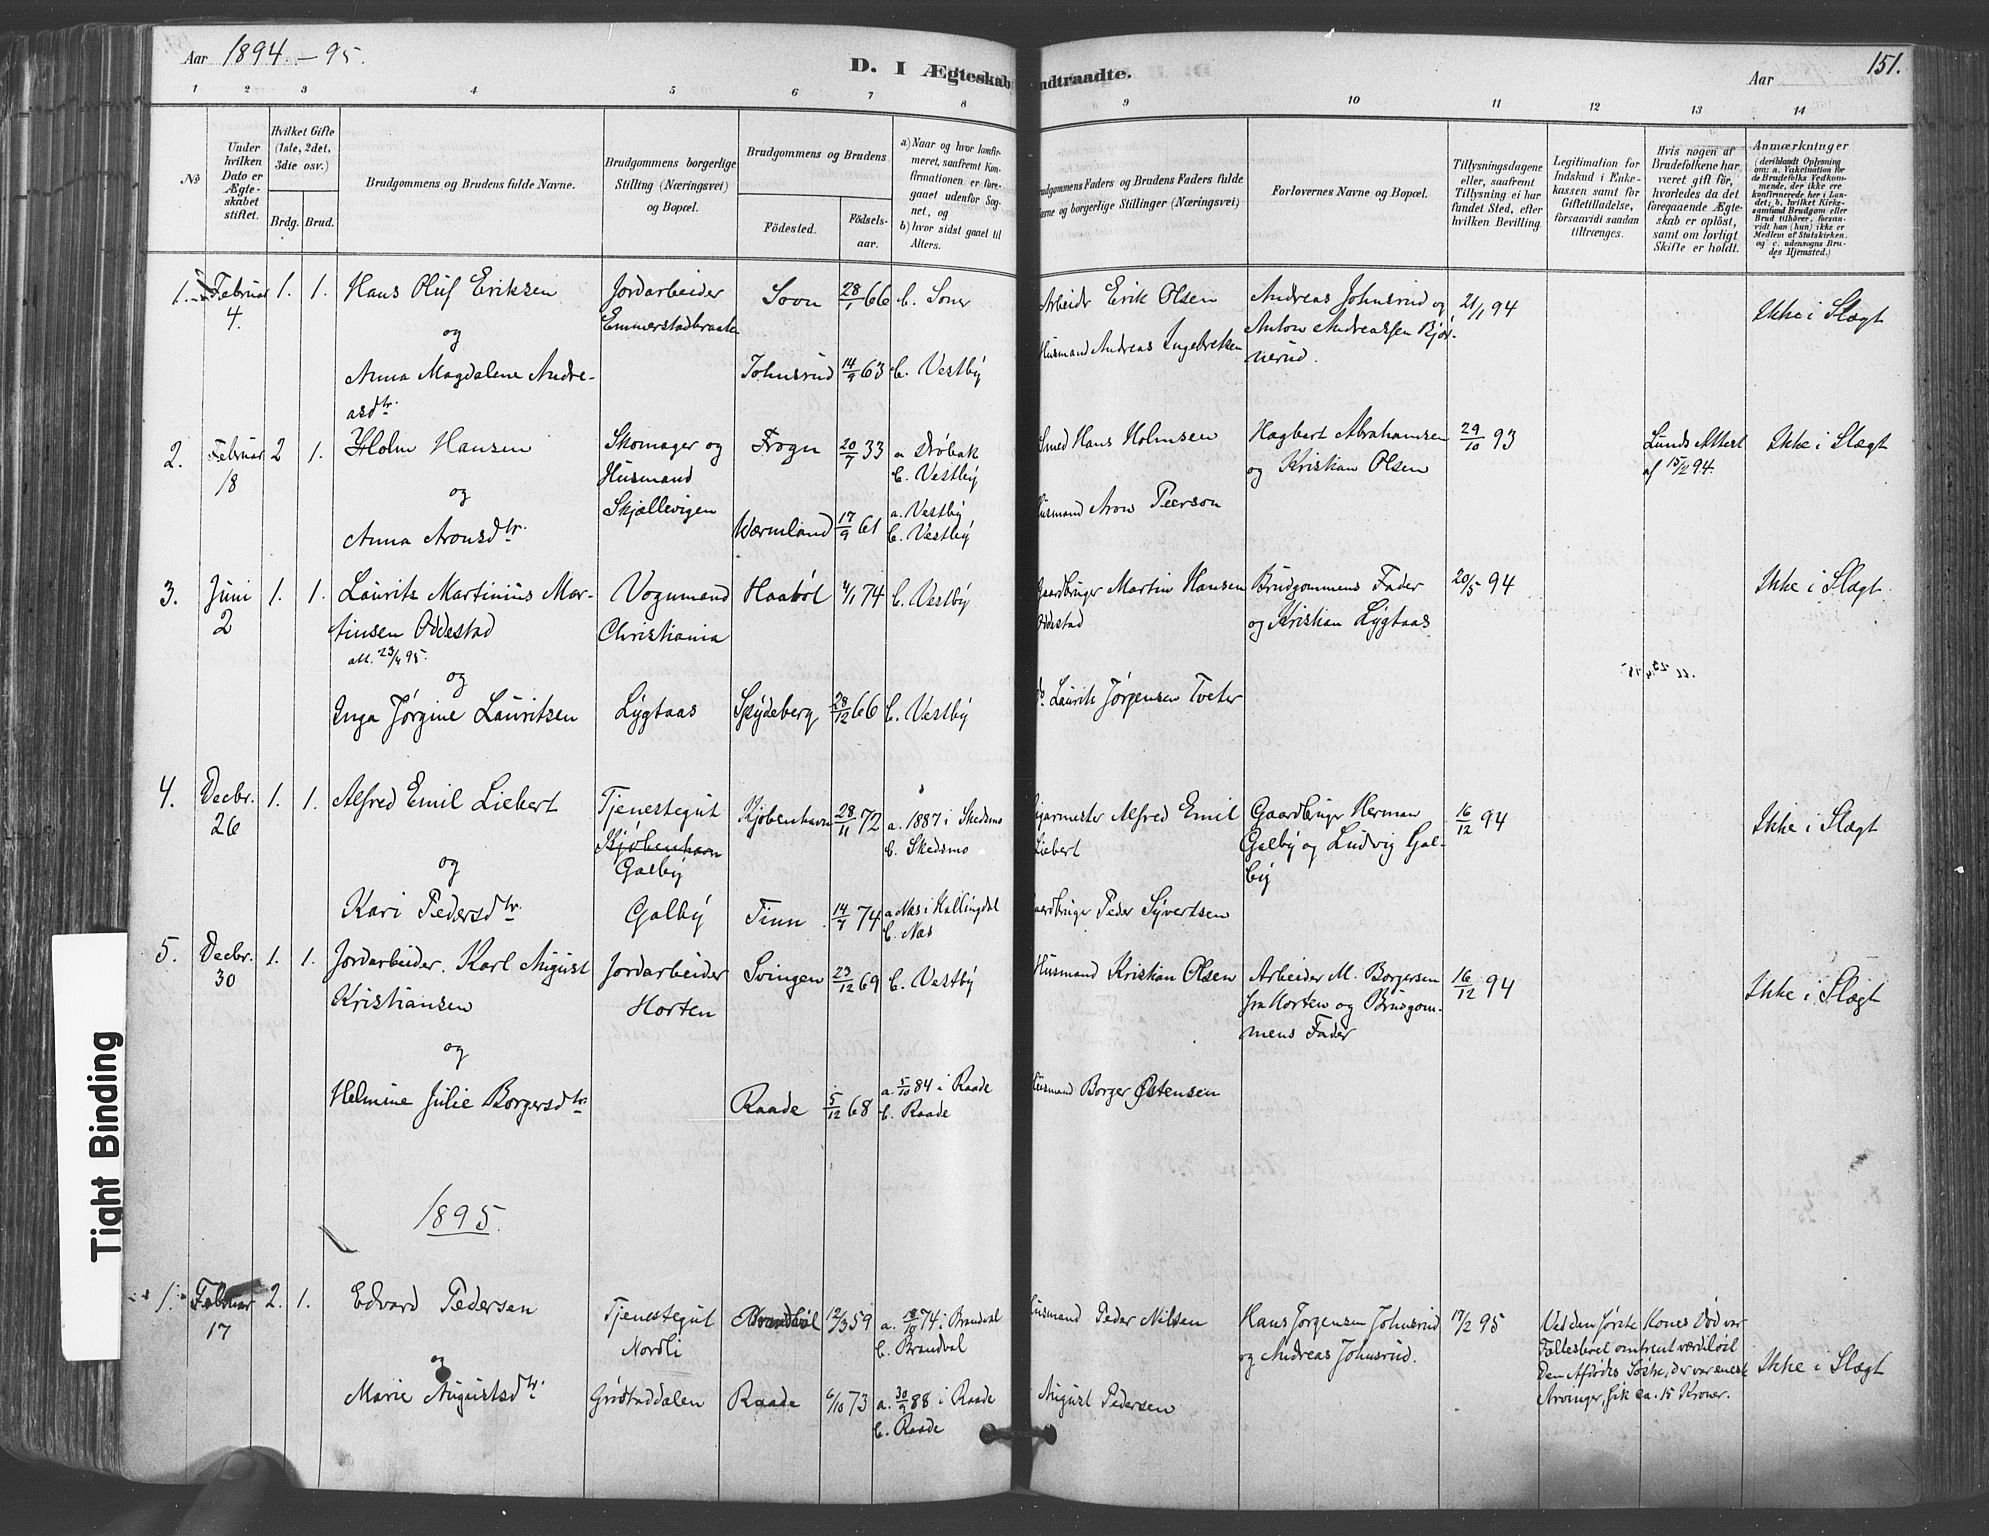 Aar 1894.-95.
D. I Ægteskab
ndtraadte.
Aar
151.
1 2 3 4 5 6 7 8 9 10 11 12 13 14
No
Under hvilken Dato er Ægteskabet stiftet.
Hvilket Gifte (1ste, 2det, 3die osv.)
Brdg. Brud.
Brudgommens og Brudens fulde Navne.
Brudgommens borgerlige Stilling (Næringsvei) og Bopæl.
Brudgommens og Brudens
Födested.
Födsels-aar.
a) Naar og hvor konfirmeret, saafremt Konfirmationen er foregaaet udenfor Sognet, og
b) hvor sidst gaaet til Alters.
udgommens Faders og Brudens Faders fulde
avne og borgerlige Stillinger (Næringsvei)
Forlovernes Navne og Bopæl.
Tillysningsdagene eller, saafremt Tillysning ei har fundet Sted, efter hvilken Bevilling.
Legitimation for Indskud i Enkekassen samt for Giftetilladelse, forsaavidt saadan tiltrænges.
Hvis nogen af Brudefolkene har været gift för, hvorledes da det foregaaende Ægteskab er oplöst, samt om lovligt Skifte er holdt.
Anmærkninger
(deriblandt Oplysning om: a. Vakcination for de Brudefolks Vedkommende, der ikke ere konfirmerede her i Landet; b. hvilket Kirkesamfund Brudgom eller Brud tilhörer, forsaavidt han (hun) ikke er Medlem af Statskirken. og c. udensogns Brudes Hjemsted.)
1. Februar 4. 1. 1. Hans Oluf Eriksen Jordarbeider Emmerstadbraaten Sovn 28/1 66 b. Soner Arbeider Erik Olsen Andreas Johnsrud og Anton Andreassen Bjørnerud. 21/1 94 Ikke i Slægt
og
Anna Magdalene Andreasdtr. Johnsrud 14/9 63 b. Vestby Husmand Andreas Ingebretsen
2. Februar 18 2 1. Holm Hansen Skomager og Husmand Skjællevigen Frogn 20/7 33 a Drøbak b. Vestby Smed Hans Holmsen Hagbart Abrahamsen og Kristian Olsen 29/10 93 Lunds Attest af 15/2 94. Ikke i Slægt
og
Anna Aronsdtr. Wermland 17/9 61 a. Vestby b. Vestby Husmand Aron Peerson
3. Juni 2 1. 1. Laurits Martinius Martinsen Oddestad Vognmand Christiania Haabøl 4/1 74 b. Vestby Gaardbruger Martin Hansen Oddestad Brudgommens Fader og Kristian Lygtaas 20/5 94 Ikke i Slægt.
att. 23/4 95.
og
Inga Jørgine Lauritsen Lygtaas Spydeberg 28/12 66 b. Vestby do Laurits Jørgensen Tveter
4. Decbr. 26 1. 1. Alfred Emil Liebert Tjenestegut Kjøbenhavn Galby Kjøbenhavn 28/11 72 a. 1887 i Skedsmo b. Skedsmo Alfred Emil Liebert Gaardbruger Herman Galby og Ludvig Galby 16/12 94 Ikke i Slægt
og
Kari Pedersdtr. Galby Tinn 14/7 74 a Næs i Hallingdal b. Næs Gaardbruger Peder Syvertsen
5. Decbr. 30 1. 1. Jordarbeider. Karl August Kristiansen Jordarbeider Horten Svingen 23/12 69 b. Vestby Husmand Kristian Olsen Arbeider M. Borgersen fra Horten og Brudgommens Fader 16/12 94 Ikke i Slægt
og
Helmine Julie Borgersdtr. Raade 5/12 68 a. 5/10 84 i Raade b. Raade Husmand Borger Østensen
1895.
1. Februar 17 2. 1. Edvard Pedersen Tjenestegut Nordli Brandvol 12/3 59 a. 18/10 74 i Brandval b. Brandval Husmand Peder Nilsen Hans Jørgensen Johnsrud og Andreas Johnsrud. 17/2 95 Ved den første Kones Død var Fællesboet omtrent værdiløst Den Afdødes Søster, der var eneste Arvinger, fik ca. 15 Kroner. Ikke i Slægt
og
Marie Augustsdtr. Grøstaddalen Raade 6/10 73 a. 30/9 88 i Raade b. Raade August Pedersen
Tight Binding